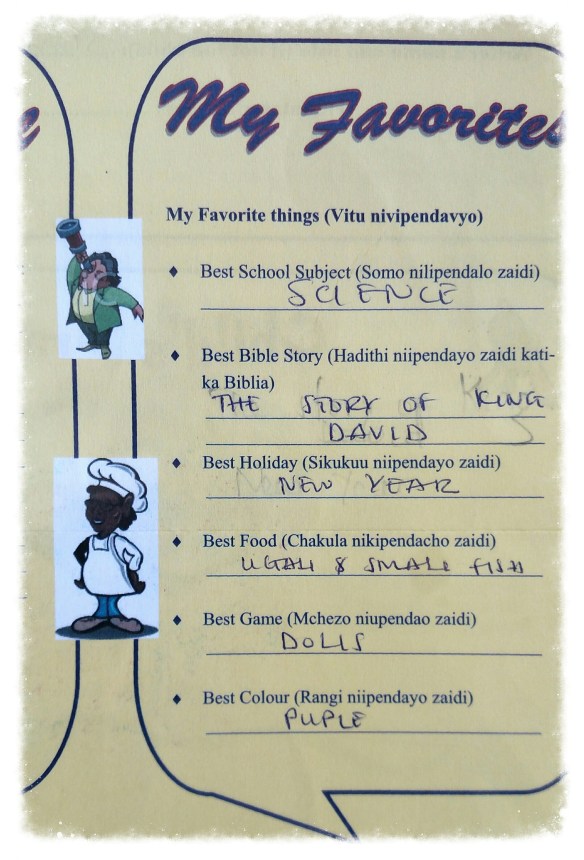 My Favorites
My Favorite things (Vitu nivipendavyo)
♦ Best School Subject (Somo nilipendalo zaidi)
SCIENCE
♦ Best Bible Story (Hadithi niipendayo zaidi kati-
ka Biblia)
THE STORY OF KING
DAVID
♦ Best Holiday (Sikukuu niipendayo zaidi)
NEW YEAR
♦ Best Food (Chakula nikipendacho zaidi)
UGALI & SMALL FISH
♦ Best Game (Mchezo niupendao zaidi)
DOLLS
♦ Best Colour (Rangi niipendayo zaidi)
PUPLE